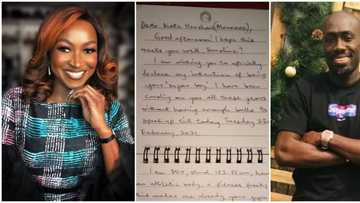 Dear Kate Henshaw
Good afternoon! I hope this
you well Sunshine?
I am writing you to officially
declare my intentions of being
your "sugar boy". I have been
crushing on you all these years
without having enough balls to
speak up till today Tuesday
February, 2021.
I am stand 182.88cm, have
an athletic body, a fitness freak
that makes me already your